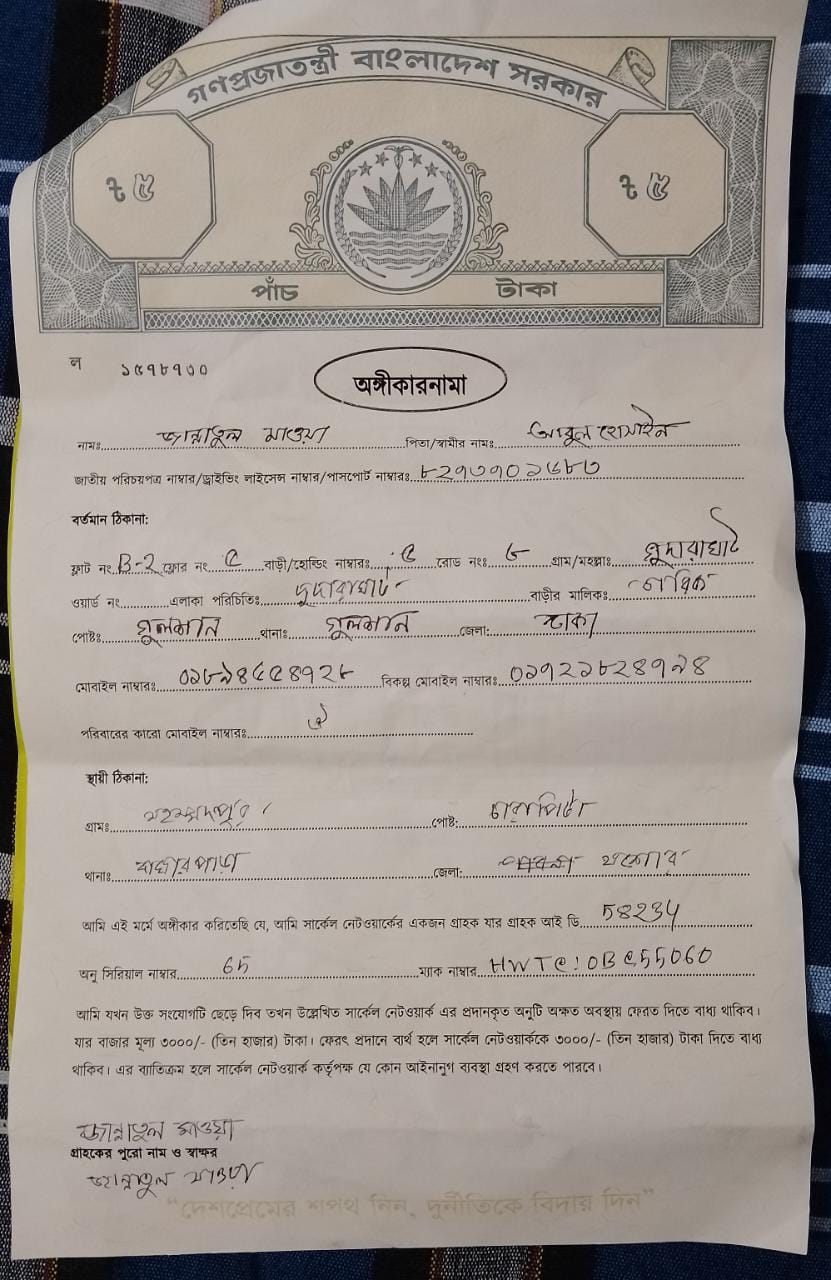 গণপ্রজাতন্ত্রী বাংলাদেশ সরকার
৳ ৫ ৳ ৫
পাঁচ টাকা
ল ১৫৭৮৭৩০
অঙ্গীকারনামা
নামঃ জান্নাতুল মাওয়া পিতা/স্বামীর নামঃ আবুল হোসাইন
জাতীয় পরিচয়পত্র নাম্বার/ড্রাইভিং লাইসেন্স নাম্বার/পাসপোর্ট নাম্বারঃ ৮২৭৩৭০১৬৮৩
বর্তমান ঠিকানা:
ফ্লাট নং B-2 ফ্লোর নং ৫ বাড়ী/হোল্ডিং নাম্বারঃ ৫ রোড নংঃ ৬ গ্রাম/মহল্লাঃ গুদারাঘাট
ওয়ার্ড নং এলাকা পরিচিতিঃ গুদারাঘাট বাড়ীর মালিকঃ
পোষ্টঃ গুলশান থানাঃ গুলশান জেলা: ঢাকা
মোবাইল নাম্বারঃ ০১৮৯৪৫৫৪৭২৮ বিকল্প মোবাইল নাম্বারঃ ০১৭২১৮২৪৭৯৪
পরিবারের কারো মোবাইল নাম্বারঃ ঐ
স্থায়ী ঠিকানা:
গ্রামঃ মহম্মদপুর পোষ্ট:
থানাঃ বাঘারপাড়া জেলা: যশোর
আমি এই মর্মে অঙ্গীকার করিতেছি যে, আমি সার্কেল নেটওয়ার্কের একজন গ্রাহক যার গ্রাহক আই ডি 58234
অনু সিরিয়াল নাম্বার 65 ম্যাক নাম্বার HWTC:0BC55060
আমি যখন উক্ত সংযোগটি ছেড়ে দিব তখন উল্লেখিত সার্কেল নেটওয়ার্ক এর প্রদানকৃত অনুটি অক্ষত অবস্থায় ফেরত দিতে বাধ্য থাকিব।
যার বাজার মূল্য ৩০০০/- (তিন হাজার) টাকা। ফেরৎ প্রদানে ব্যর্থ হলে সার্কেল নেটওয়ার্ককে ৩০০০/- (তিন হাজার) টাকা দিতে বাধ্য
থাকিব। এর ব্যতিক্রম হলে সার্কেল নেটওয়ার্ক কর্তৃপক্ষ যে কোন আইনানুগ ব্যবস্থা গ্রহণ করতে পারবে।
জান্নাতুল মাওয়া
গ্রাহকের পুরো নাম ও স্বাক্ষর
জান্নাতুল মাওয়া
"দেশপ্রেমের শপথ নিন, দুর্নীতিকে বিদায় দিন"